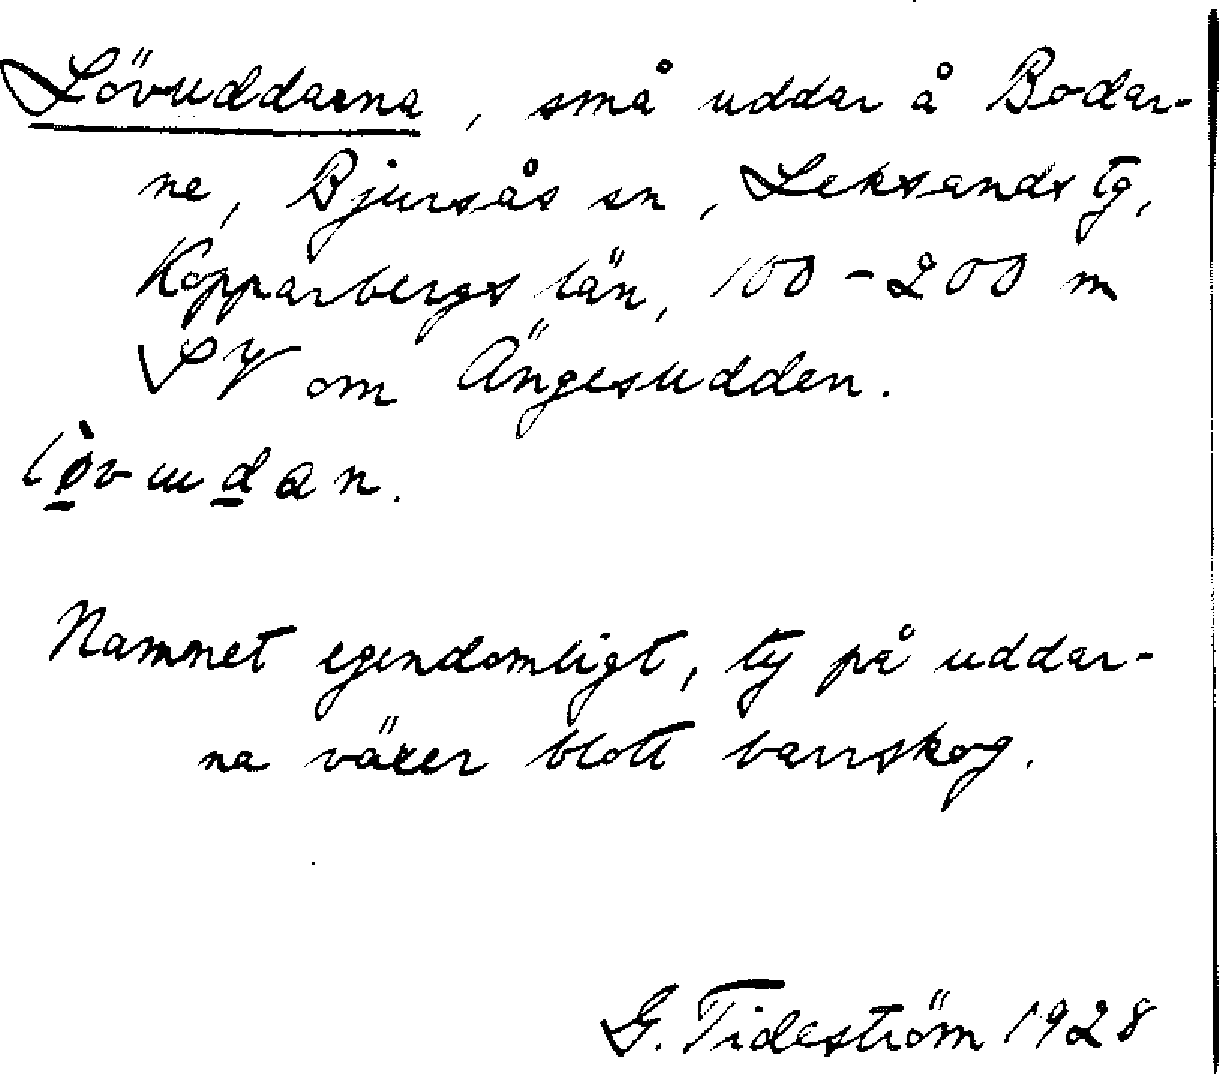 Lövuddarna, små uddar å Bodar-
ne, Bjursås sn, Leksands tg,
Kopparbergs län, 100-200 m
SV om Ängesudden.
lø̀vudan.
Namnet egendomligt, ty på uddar-
na växer blott barrskog.
G. Tideström 1928